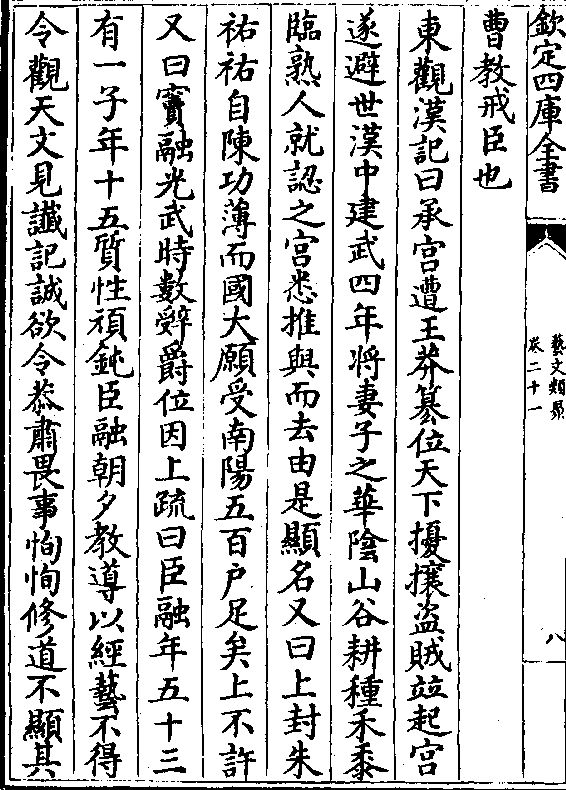 欽定四庫全書
藝文類聚
卷二十一
八
曹教戒臣也
東觀漢記曰承宮遭王莽簒位天下擾攘盜賊竝起宮
遂避世漢中建武四年將妻子之華陰山谷耕種禾黍
臨熟人就認之宮悉推與而去由是顯名又曰上封朱
祐祐自陳功薄而國大願受南陽五百户足矣上不許
又曰竇融光武時數辭爵位因上疏曰臣融年五十三
有一子年十五質性頑鈍臣融朝夕教導以經藝不得
令觀天文見讖記誠欲令恭肅畏事恂恂修道不顯其